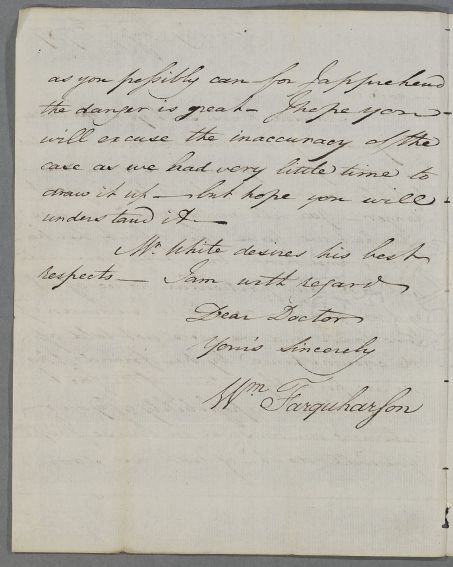 as you possibly can for I apprehend
the danger is great – I hope you
will excuse the inaccuracy of the
case as we had very little time to
draw it up – but hope you will
understand it –
Mr. White desires his best
respects – I am with regard
Dear Doctor
Your's Sincerely
Wm Farquharson